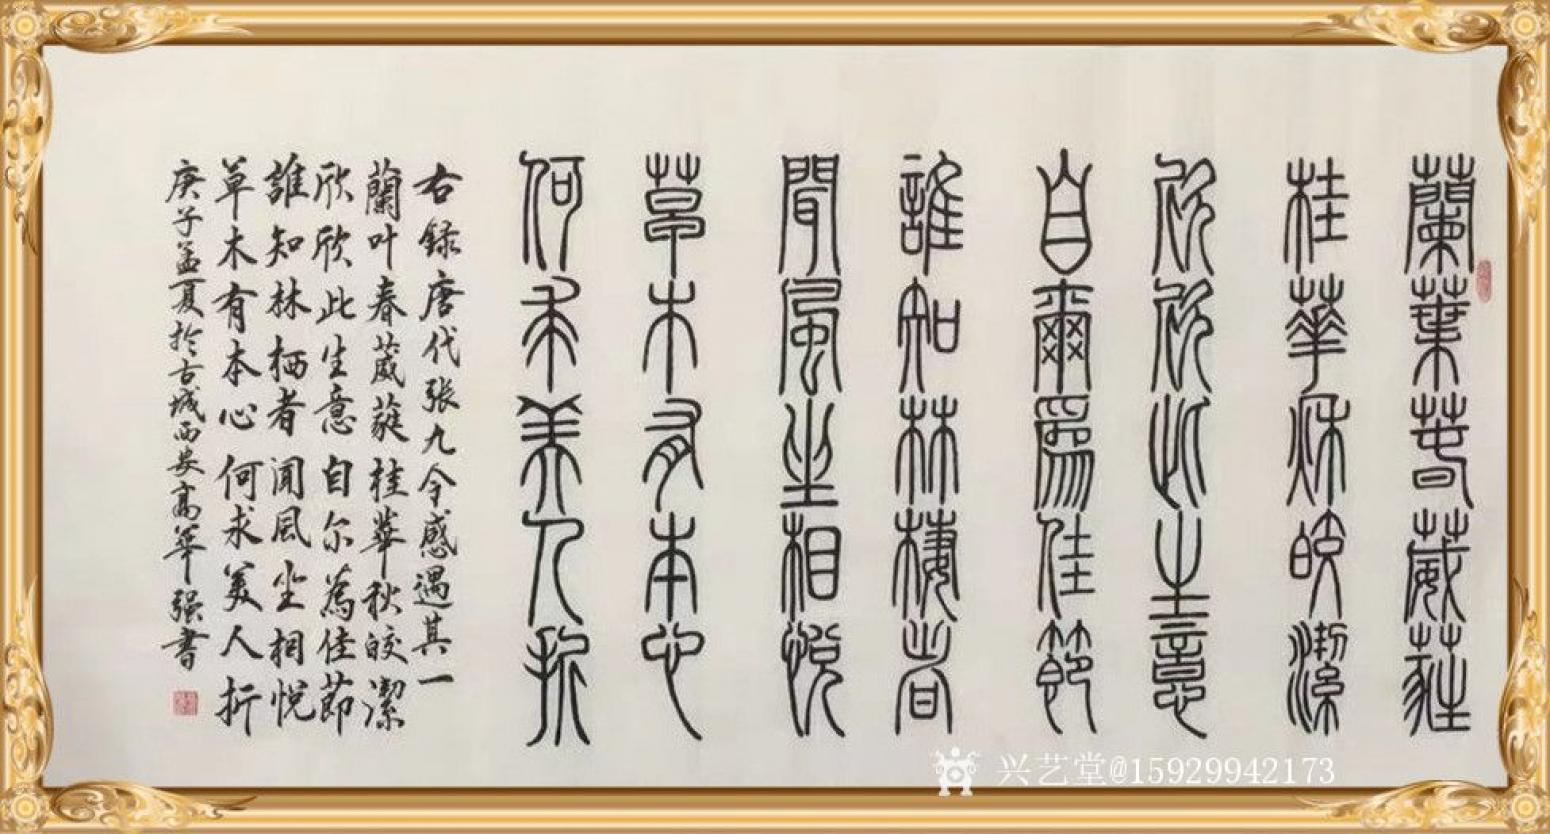 蘭葉萅葳蕤
桂華秌皎潔
欣欣此生意
自爾爲佳節
誰知林棲者
聞風坐相悅
草木有本心
何求美人折
右錄唐代张九令感遇其一
蘭叶春葳蕤桂華秋皎潔
欣欣此生意自尔為佳節
誰知林栖者闻風坐相悦
草木有本心何求美人折
庚子孟夏於古城西安高華强書
兴艺堂@15929942173